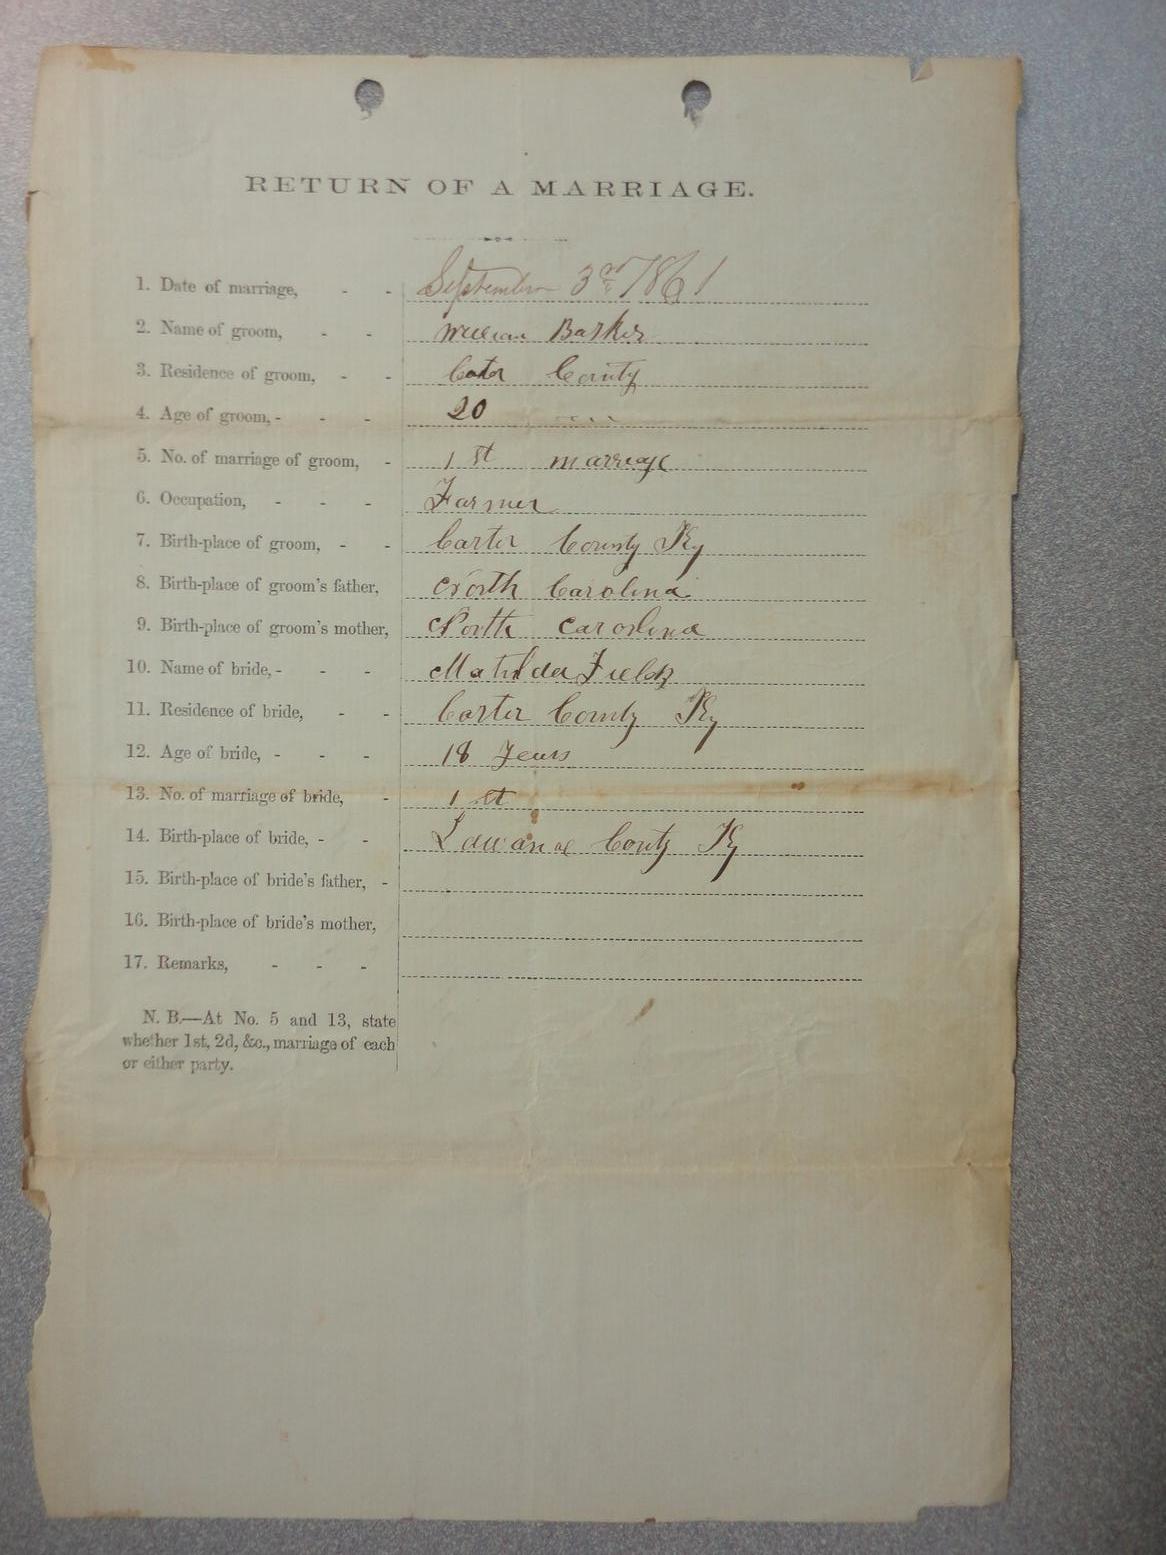 RETURN OF A MARRIAGE.
1. Date of marriage, - - September 3rd 1861
2. Name of groom, - - William Barker
3. Residence of groom, - - Cater County
4. Age of groom, - - - 20
5. No. of marriage of groom, - 1 st marriage
6. Occupation, - - - Farmer
7. Birth-place of groom, - - Carter County Ky
8. Birth-place of groom's father, North Carolina
9. Birth-place of groom's mother, North Carolina
10. Name of bride, - - - Matilda Fields
11. Residence of bride, - - Carter County Ky
12. Age of bride, - - - 18 Years
13. No. of marriage of bride, - 1 st
14. Birth-place of bride, - - County Ky
15. Birth-place of bride's father, -
16. Birth-place of bride's mother,
17. Remarks, - - -
N. B.—At No. 5 and 13, state
whether 1st, 2d, &c., marriage of each
or either party.